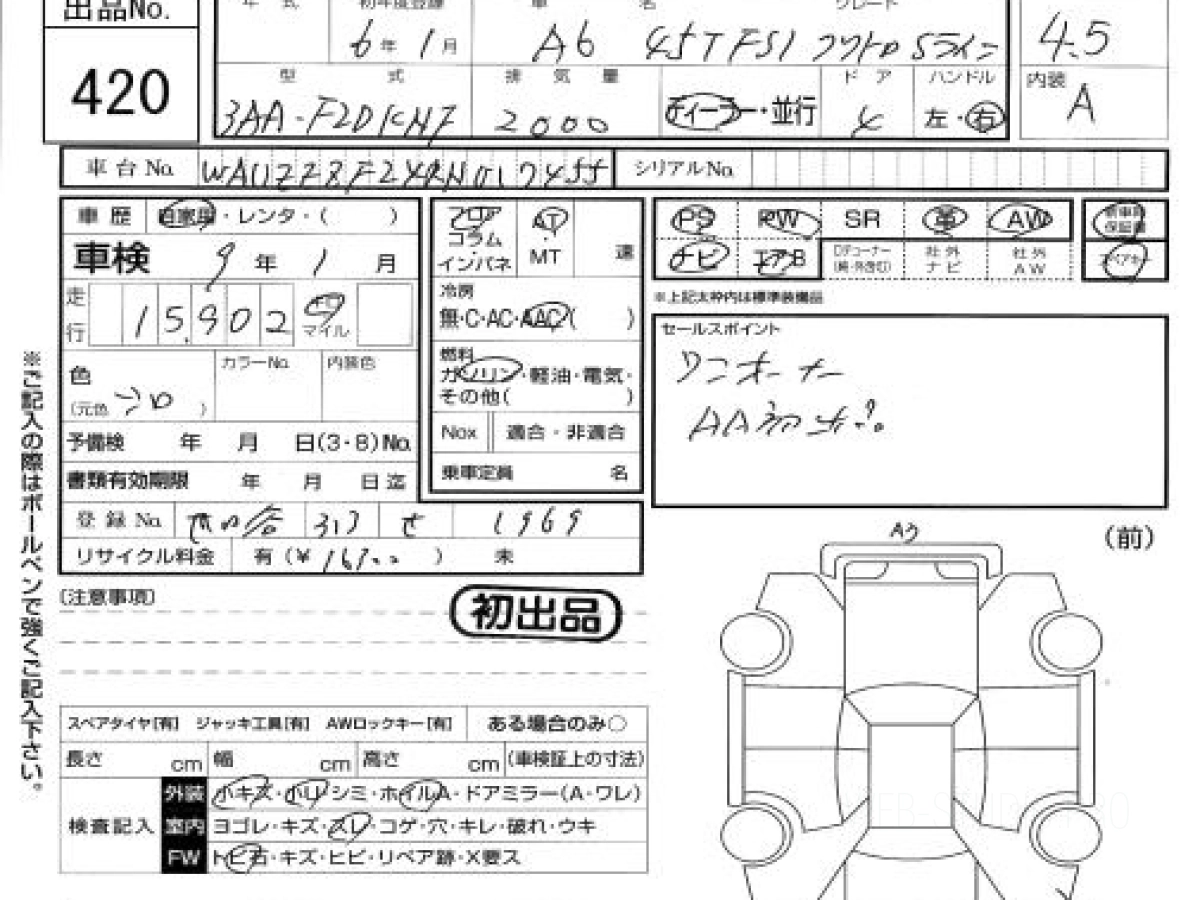 出品No.
年 式 初年度登録 車 名 グレード
6年 1月 A6 45TFSI クワトロ Sライン 4.5
420
型 式 排 気 量 ドア ハンドル 内装
3AA- 2000 ディーラー・並行 4 左・右 A
車台No. シリアルNo.
車歴 自家用・レンタ・( )
車検 9年 1月
走行 15,902 キロ マイル
色 カラーNo. 内装色
(元色 シロ )
予備検 年 月 日(3・8)No.
書類有効期限 年 月 日迄
フロア コラム インパネ
AT・MT 速
冷房
無・C・AC・AAC( )
燃料
ガソリン・軽油・電気・
その他( )
Nox 適合・非適合
乗車定員 名
PS PW SR 革 AW 新車時保証書
ナビ エアB 社外ナビ 社外AW スペアキー
※上記太枠内は標準装備品
セールスポイント
ワンオーナー
AA初出品
登録No. 世田谷 317 せ 1969
リサイクル料金 有(¥ ) 未
※ご記入の際はボールペンで強くご記入下さい。
[注意事項]
初出品
A3
(前)
スペアタイヤ[有] ジャッキ工具[有] AWロックキー[有] ある場合のみ○
長さ cm 幅 cm 高さ cm (車検証上の寸法)
検査記入
外装 小キズ・小凹・シミ・ホイルA・ドアミラー(A・ワレ)
室内 ヨゴレ・キズ・スレ・コゲ・穴・キレ・破れ・ウキ
FW トビ石・キズ・ヒビ・リペア跡・X要ス